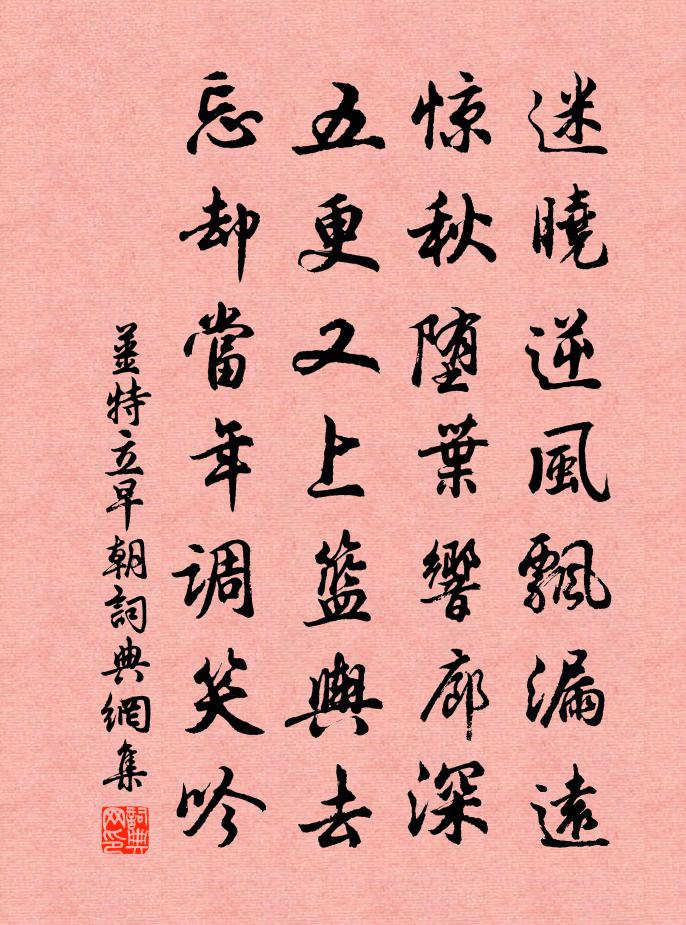 迷曉逆風飄漏遠
惊秋堕葉響廊深
五更又上篮輿去
忘却當年调笑吟
薑特立早朝詞典網集
詞典网印